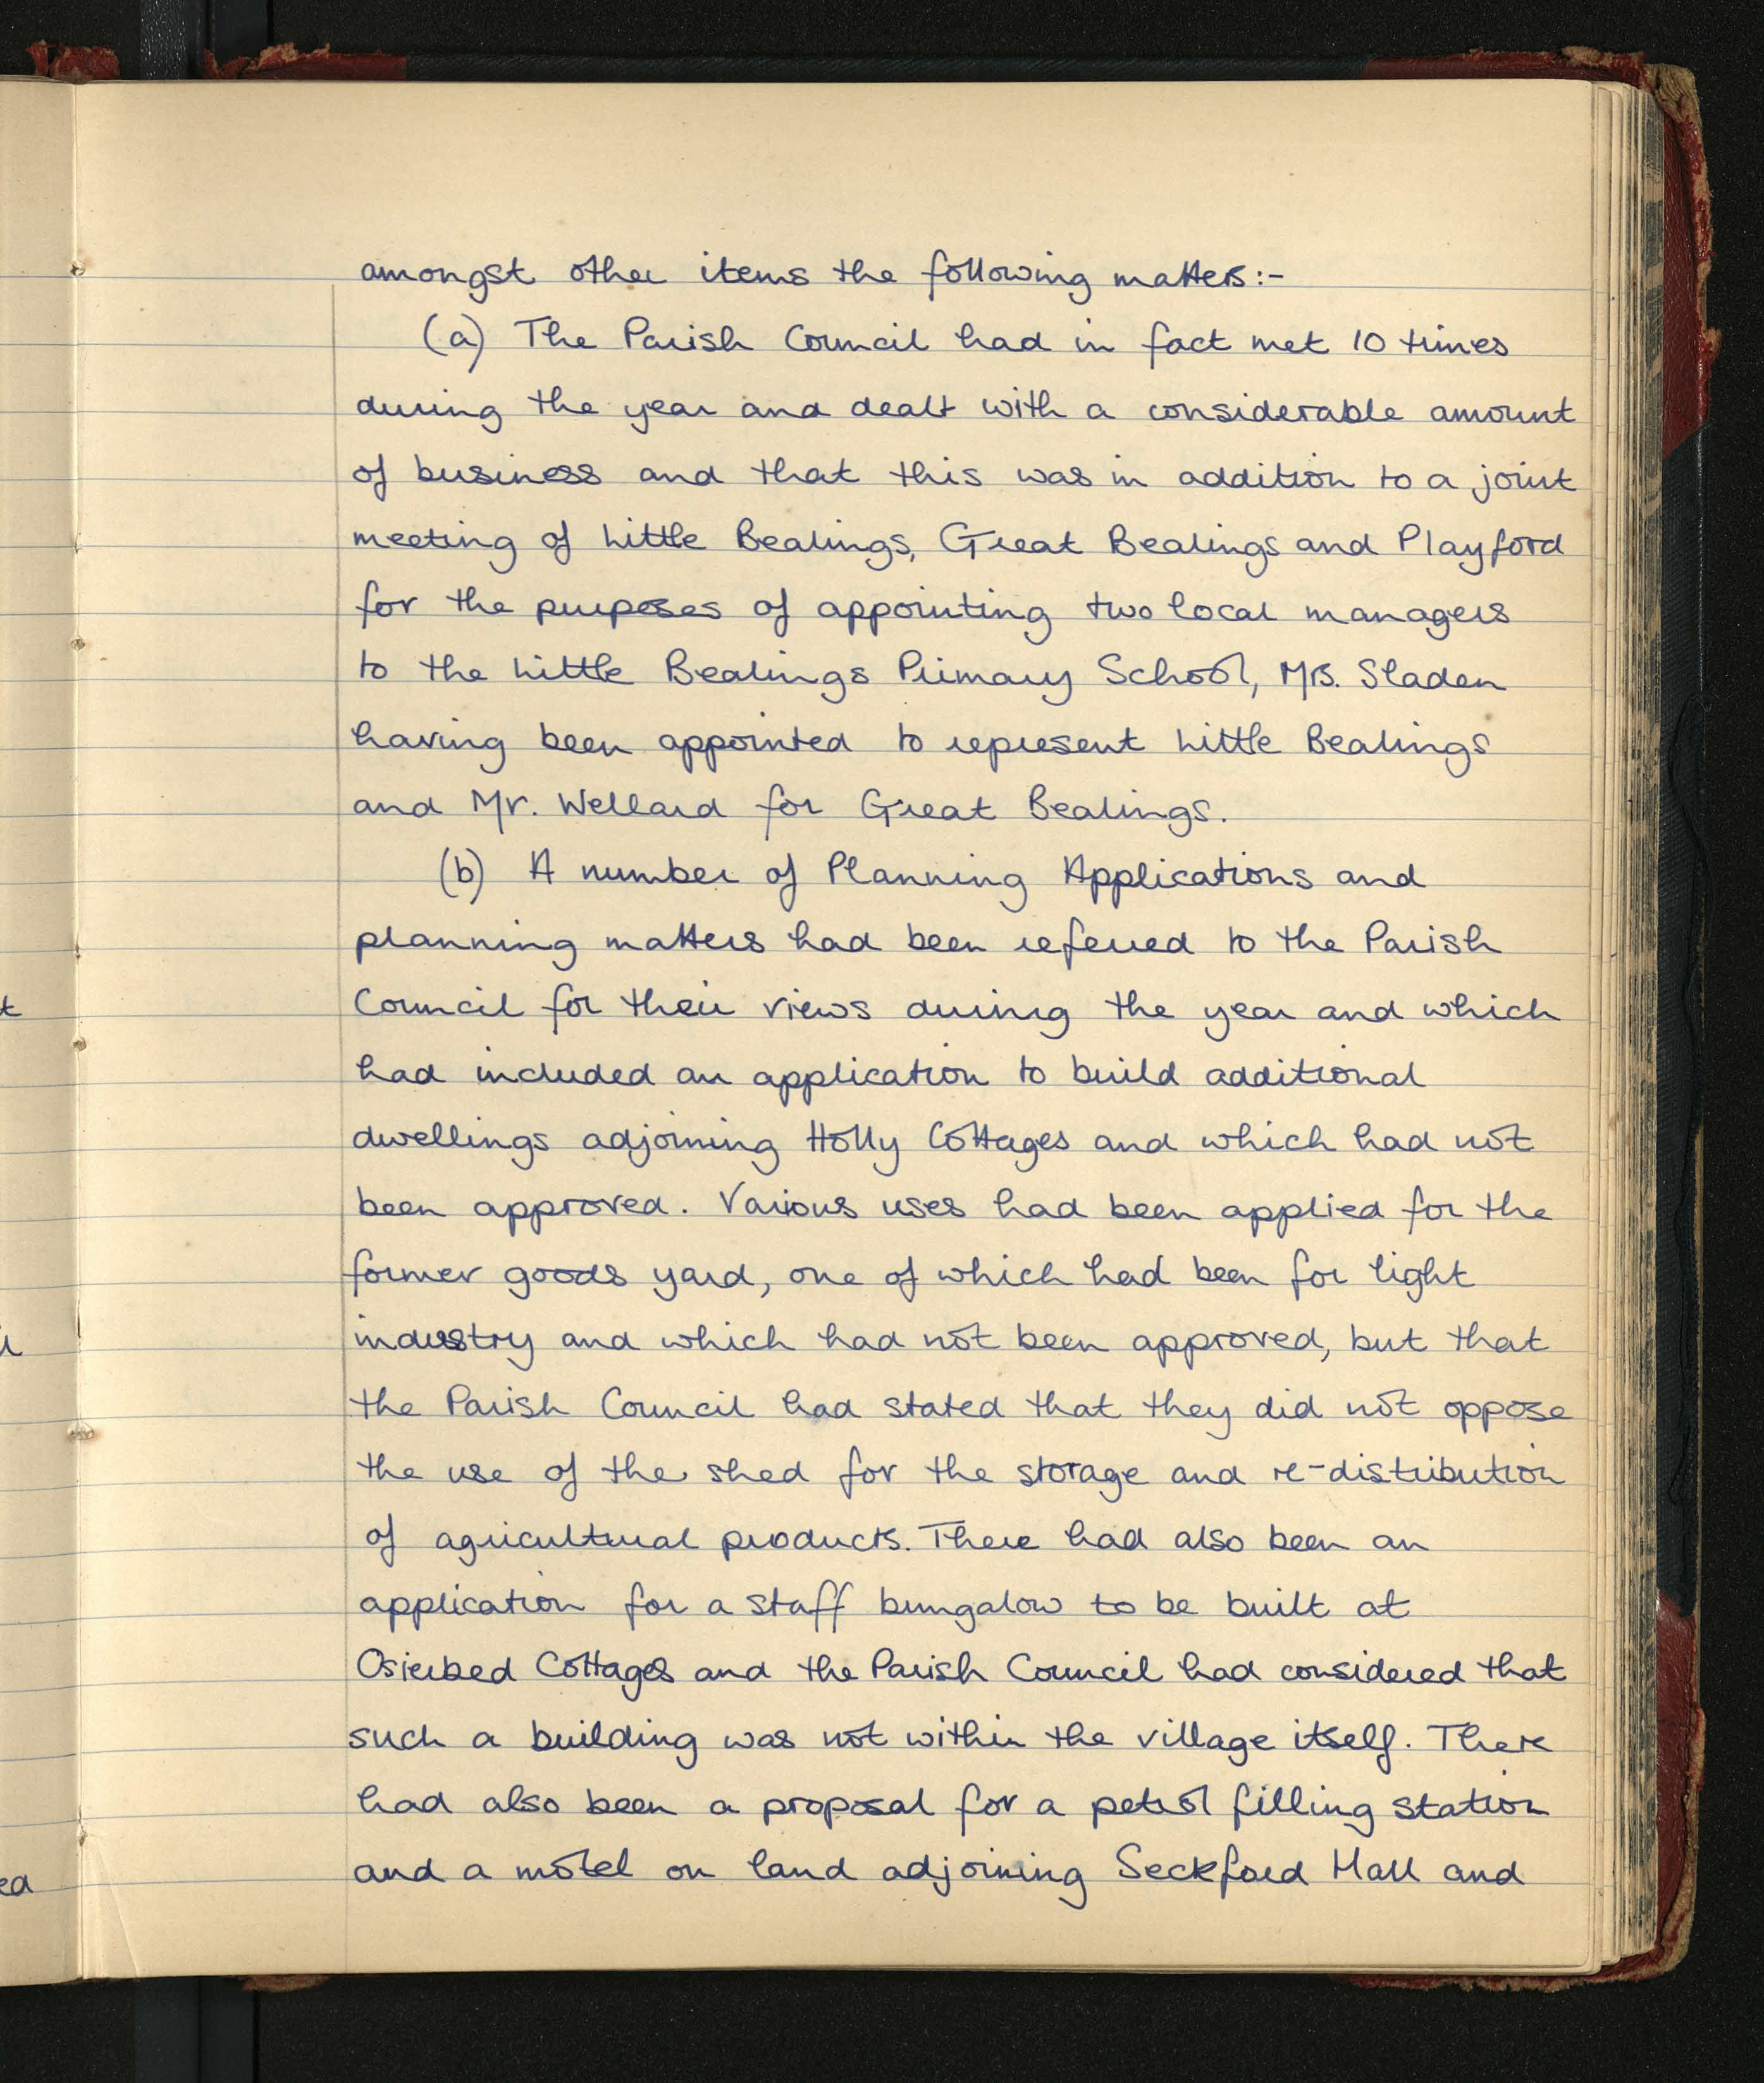 amongst other items the following matters:-
(a) The Parish Council had in fact met 10 times
during the year and dealt with a considerable amount
of business and that this was in addition to a joint
meeting of Little Bealings, Great Bealings and Playford
for the purposes of appointing two local managers
to the Little Bealings Primary School, Mrs. Sladen
having been appointed to represent Little Bealings
and Mr. Wellard for Great Bealings.
(b) A number of Planning Applications and
planning matters had been referred to the Parish
Council for their views during the year and which
had included an application to build additional
dwellings adjoining Holly Cottages and which had not
been approved. Various uses had been applied for the
former goods yard, one of which had been for light
industry and which had not been approved, but that
the Parish Council had stated that they did not oppose
the use of the shed for the storage and re-distribution
of agricultural products. There had also been an
application for a staff bungalow to be built at
Osierbed Cottages and the Parish Council had considered that
such a building was not within the village itself. There
had also been a proposal for a petrol filling station
and a motel on land adjoining Seckford Hall and